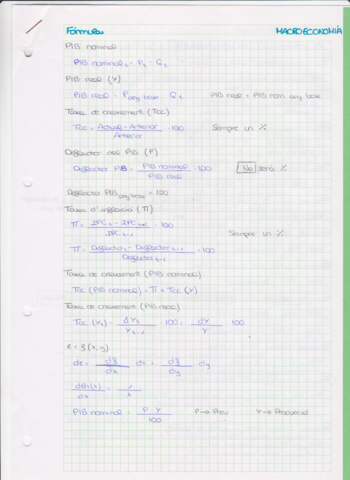 Fórmules MACROECONOMÍA
PIB nominal
PIB nominal t = Pt · Qt
PIB real (Y)
PIB real = P any base · Qt PIB real = PIB nom any base
Taxa de creixement (Tac)
Tac = Actual - Anterior / Anterior · 100 Sempre un %
Deflactor del PIB (P)
Deflactor PIB = PIB nominal / PIB real · 100 No serà %
Deflactor PIB any base = 100
Taxa d'inflació (π)
π = IPCt - IPC / IPC t-1 · 100 Sempre un %
π = Deflactor t - Deflactor t-1 / Deflactor t-1 · 100
Taxa de creixement (PIB nominal)
Tac (PIB nominal) = π + Tac (Y)
Taxa de creixement (PIB real)
Tac (Yt) = ΔYt / Y t-1 · 100 = dY / Y · 100
z = f(x, y)
dz = df / dx dx + df / dy dy
PIB nominal = P · Y / 100 P → Preu Y → Producció